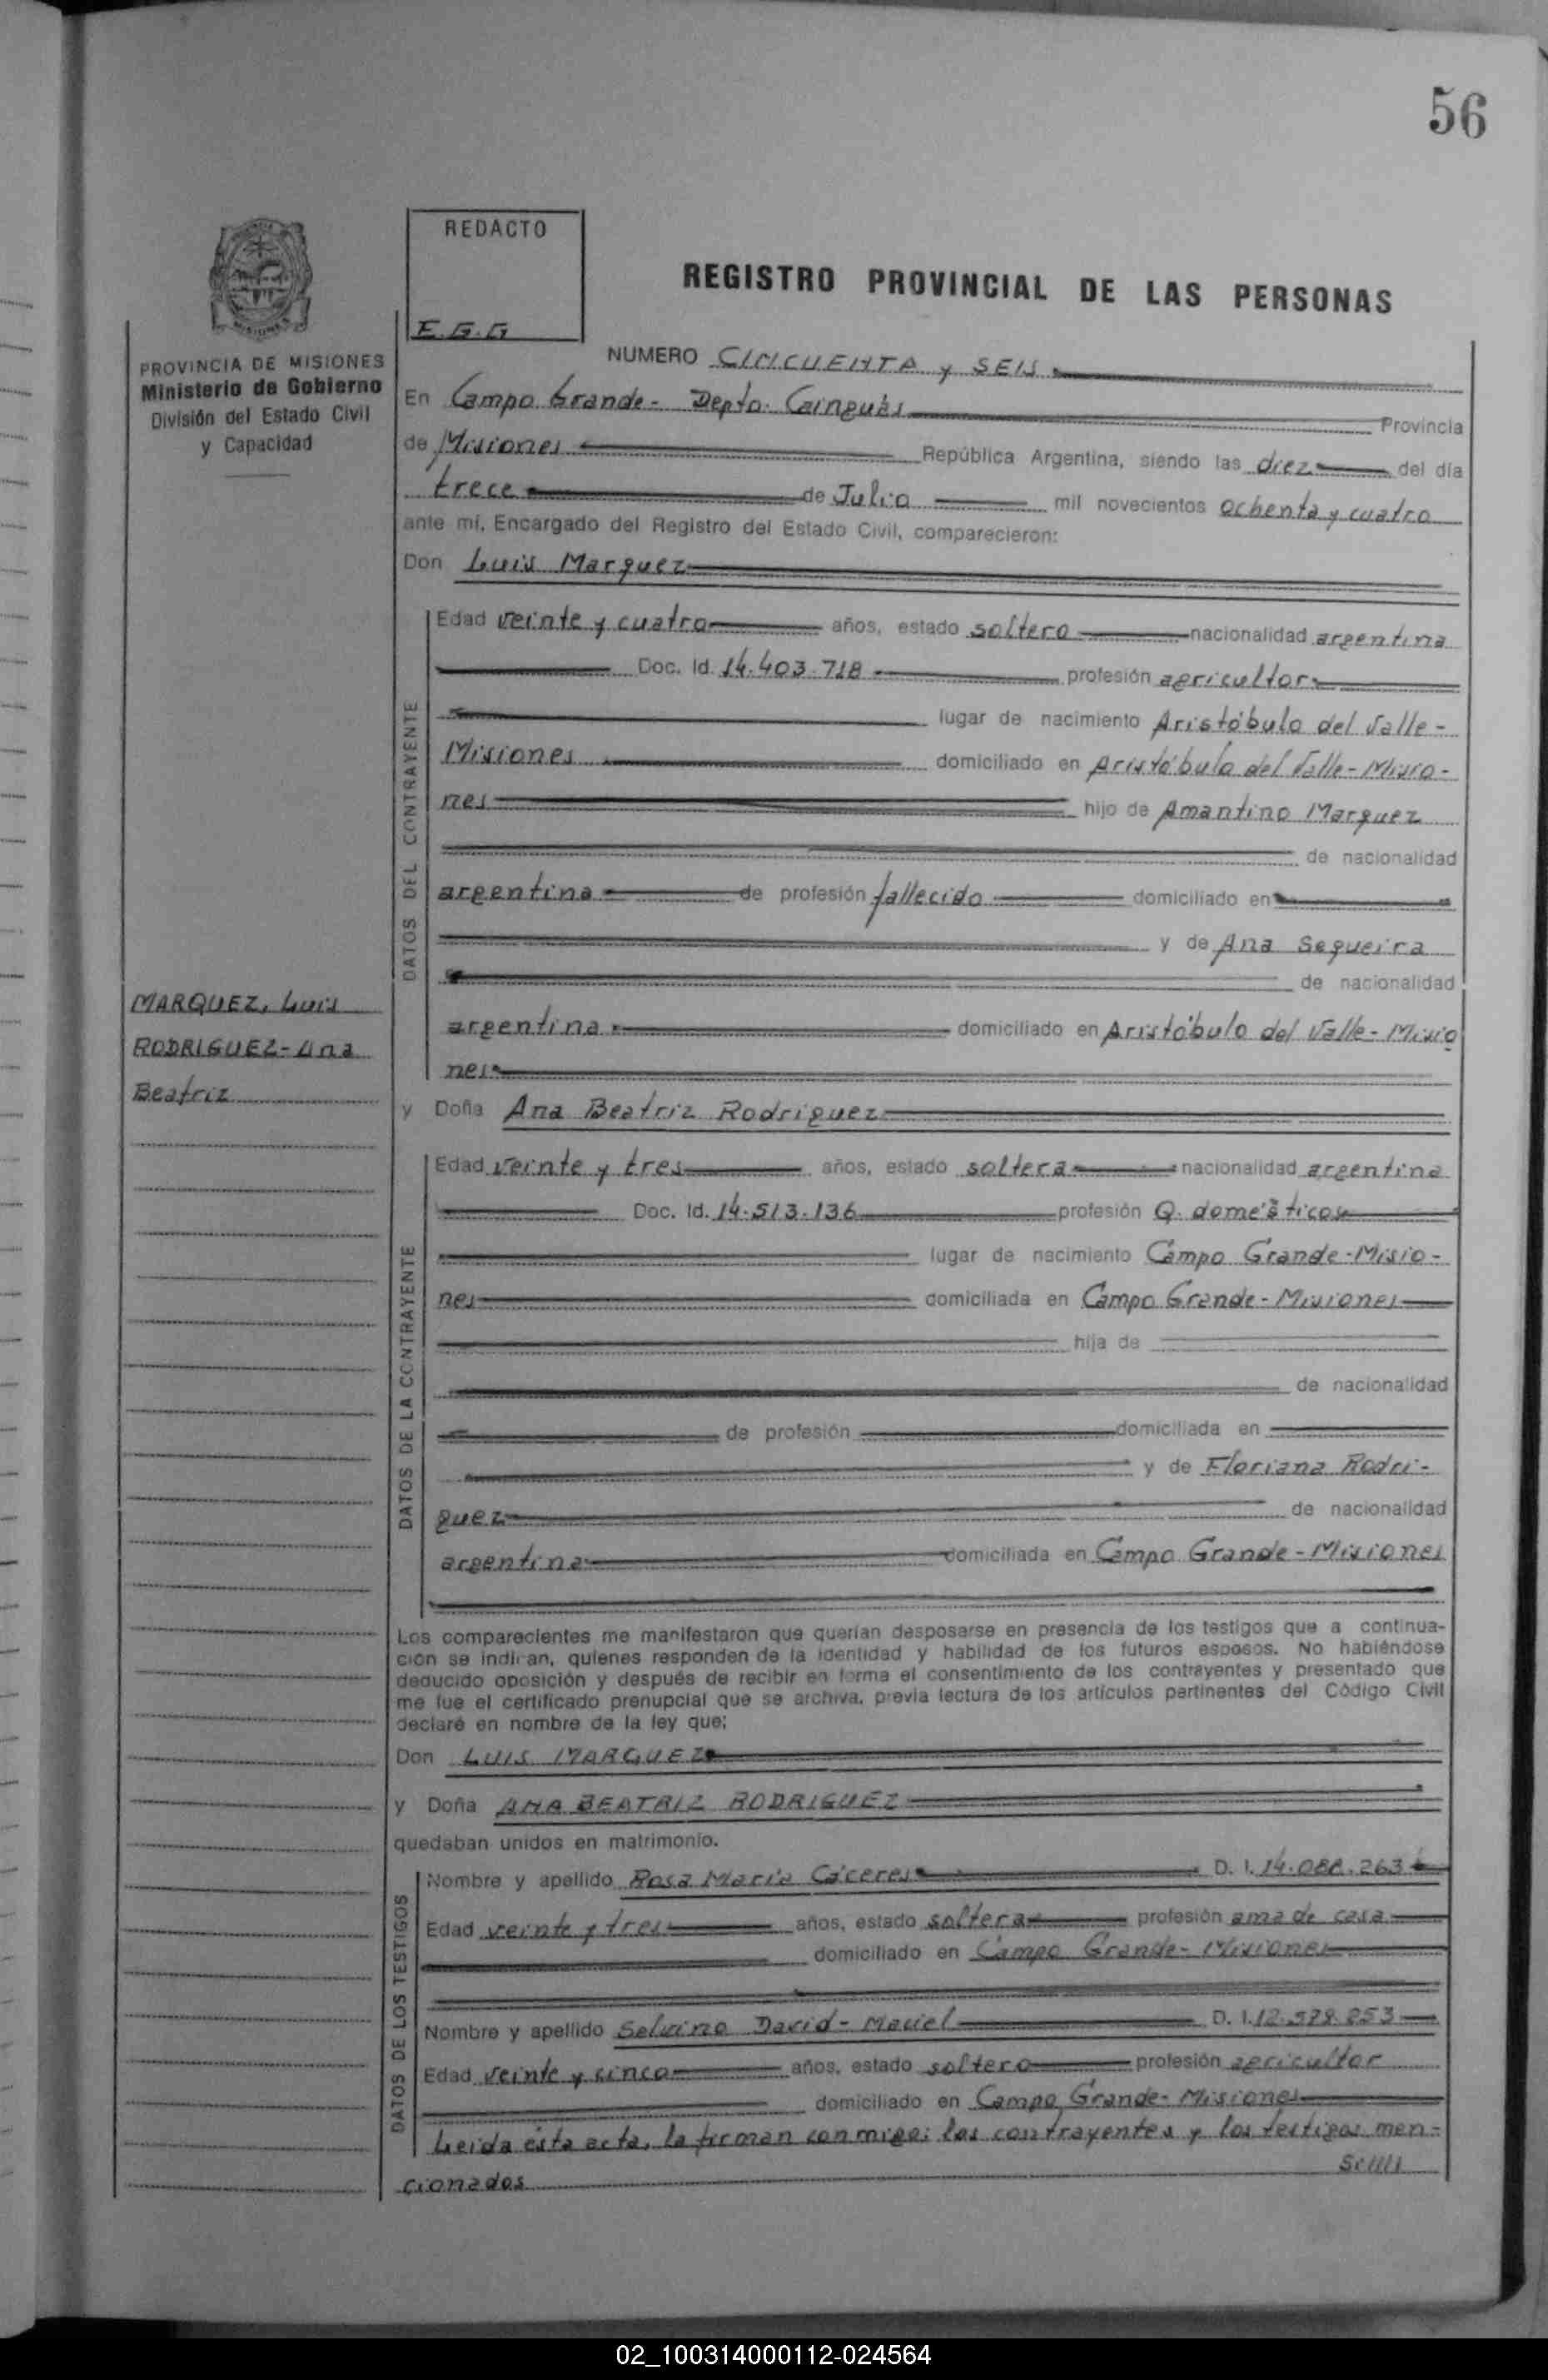 56
REDACTO
E.G.G
REGISTRO PROVINCIAL DE LAS PERSONAS
PROVINCIA DE MISIONES
Ministerio de Gobierno
División del Estado Civil
y Capacidad
NUMERO CINCUENTA y SEIS
En Campo Grande - Depto. Cainguás Provincia
de Misiones República Argentina, siendo las diez del día
trece de Julio mil novecientos ochenta y cuatro
ante mí, Encargado del Registro del Estado Civil, comparecieron:
Don Luis Marquez
DATOS DEL CONTRAYENTE
Edad veinte y cuatro años, estado soltero nacionalidad argentina
Doc. Id. 14.403.718 profesión agricultor
lugar de nacimiento Aristóbulo del Valle -
Misiones domiciliado en Aristóbulo del Valle - Misio-
nes hijo de Amantino Marquez
de nacionalidad
argentina de profesión fallecido domiciliado en
y de Ana Sequeira
de nacionalidad
argentina domiciliado en Aristóbulo del Valle - Misio
nes
MARQUEZ, Luis
RODRIGUEZ - Ana
Beatriz
y Doña Ana Beatriz Rodriguez
DATOS DE LA CONTRAYENTE
Edad veinte y tres años, estado soltera nacionalidad argentina
Doc. Id. 14.513.136 profesión Q. domésticos
lugar de nacimiento Campo Grande - Misio-
nes domiciliada en Campo Grande - Misiones
hija de
de nacionalidad
de profesión domiciliada en
y de Floriana Rodri-
guez de nacionalidad
argentina domiciliada en Campo Grande - Misiones
Los comparecientes me manifestaron que querían desposarse en presencia de los testigos que a continua-
ción se indican, quienes responden de la identidad y habilidad de los futuros esposos. No habiéndose
deducido oposición y después de recibir en forma el consentimiento de los contrayentes y presentado que
me fue el certificado prenupcial que se archiva, previa lectura de los artículos pertinentes del Código Civil
declaré en nombre de la ley que;
Don LUIS MARQUEZ
y Doña ANA BEATRIZ RODRIGUEZ
quedaban unidos en matrimonio.
DATOS DE LOS TESTIGOS
Nombre y apellido Rosa María Cáceres D. I. 14.088.263
Edad veinte y tres años, estado soltera profesión ama de casa
domiciliado en Campo Grande - Misiones
Nombre y apellido Selvino David - Maciel D. I. 12.578.253
Edad veinte y cinco años, estado soltero profesión agricultor
domiciliado en Campo Grande - Misiones
Leida ésta acta, la firman conmigo; los contrayentes y los testigos men-
cionados
02_100314000112-024564